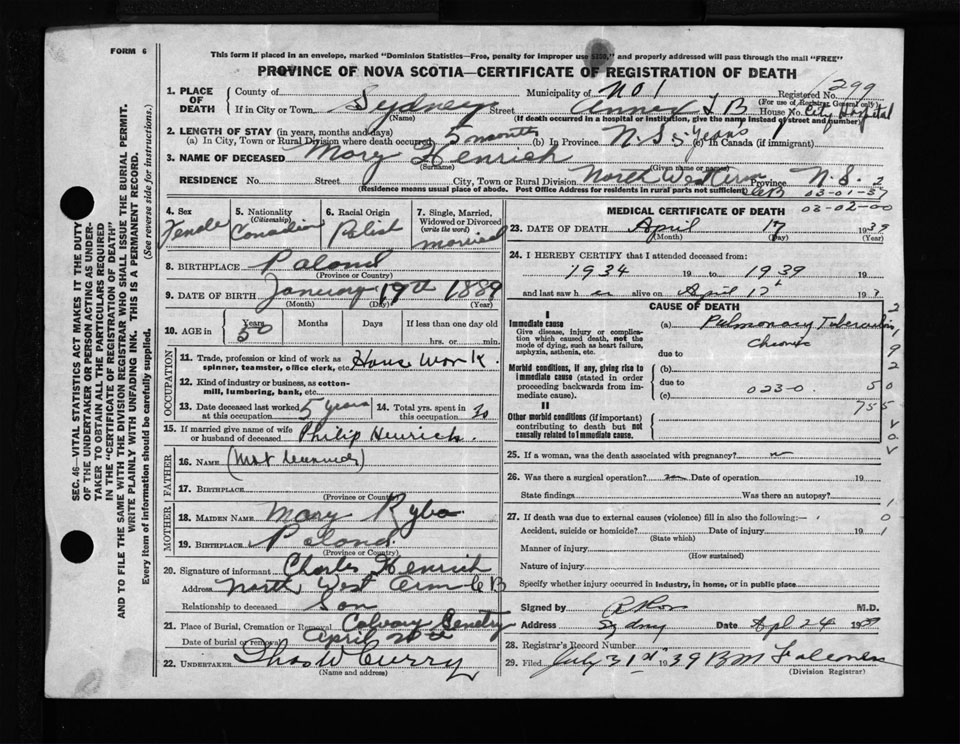 FORM 6
This form if placed in an envelope, marked "Dominion Statistics—Free, penalty for improper use $300", and properly addressed will pass through the mail "FREE"
PROVINCE OF NOVA SCOTIA—CERTIFICATE OF REGISTRATION OF DEATH
SEC. 46—VITAL STATISTICS ACT MAKES IT THE DUTY
OF THE UNDERTAKER OR PERSON ACTING AS UNDER-
TAKER TO OBTAIN ALL THE PARTICULARS REQUIRED
IN THE "CERTIFICATE OF REGISTRATION OF DEATH"
AND TO FILE THE SAME WITH THE DIVISION REGISTRAR WHO SHALL ISSUE THE BURIAL PERMIT.
WRITE PLAINLY WITH UNFADING INK. THIS IS A PERMANENT RECORD.
Every item of information should be carefully supplied. (See reverse side for instructions.)
1. PLACE OF DEATH
County of Municipality of No 1 Registered No. 299
(For use of Registrar General only)
If in City or Town Sydney Street Annex T B House No. City Hospital
(Name) (If death occurred in a hospital or institution, give the name instead of street and number)
2. LENGTH OF STAY (in years, months and days)
(a) In City, Town or Rural Division where death occurred 5 months (b) In Province N.S. 5 years (c) In Canada (if immigrant)
3. NAME OF DECEASED Mary Henrich
(Surname) (Given name or names)
RESIDENCE No. Street City, Town or Rural Division North West Arm CB Province N.S. 2
(Residence means usual place of abode. Post Office Address for residents in rural parts not sufficient) 03-01-37
03-02-00
4. Sex Female
5. Nationality (Citizenship) Canadian
6. Racial Origin Polish
7. Single, Married, Widowed or Divorced (write the word) married
8. BIRTHPLACE Poland
(Province or Country)
9. DATE OF BIRTH January 19th 1889
(Month) (Day) (Year)
10. AGE in Years 50 Months Days If less than one day old
hrs. or min.
OCCUPATION
11. Trade, profession or kind of work as
spinner, teamster, office clerk, etc. House Work.
12. Kind of industry or business, as cotton-
mill, lumbering, bank, etc.
13. Date deceased last worked at this occupation 5 years
14. Total yrs. spent in this occupation 20
15. If married give name of wife or husband of deceased Philip Henrich.
FATHER
16. NAME
17. BIRTHPLACE
(Province or Country)
MOTHER
18. MAIDEN NAME Mary Ryba
19. BIRTHPLACE Poland.
(Province or Country)
20. Signature of informant Charles Henrich
Address North West Arm CB
Relationship to deceased Son
21. Place of Burial, Cremation or Removal Calvary Semetry
Date of burial or removal April 20th
22. UNDERTAKER Thos W Curry
(Name and address)
MEDICAL CERTIFICATE OF DEATH
23. DATE OF DEATH April 17 1939
(Month) (Day) (Year)
24. I HEREBY CERTIFY that I attended deceased from:
1934 19 to 1939 19
and last saw her alive on April 17th 193
CAUSE OF DEATH
I
Immediate cause
Give disease, injury or complica-
tion which caused death, not the
mode of dying, such as heart failure,
asphyxia, asthenia, etc.
(a) Pulmonary Tuberculosis
Chronic
due to
Morbid conditions, if any, giving rise to
immediate cause (stated in order
proceeding backwards from im-
mediate cause).
(b)
due to 023-0.
(c)
II
Other morbid conditions (if important)
contributing to death but not
causally related to immediate cause.
25. If a woman, was the death associated with pregnancy? no
26. Was there a surgical operation? no Date of operation 19
State findings Was there an autopsy?
27. If death was due to external causes (violence) fill in also the following:—
Accident, suicide or homicide? Date of injury 19
(State which)
Manner of injury
(How sustained)
Nature of injury
Specify whether injury occurred in industry, in home, or in public place
Signed by M.D.
Address Sydney Date Apl 24 1939
28. Registrar's Record Number
29. Filed July 31st 1939
(Division Registrar)